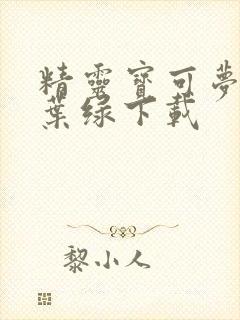 精靈寶可夢
葉綠下載
黎小人